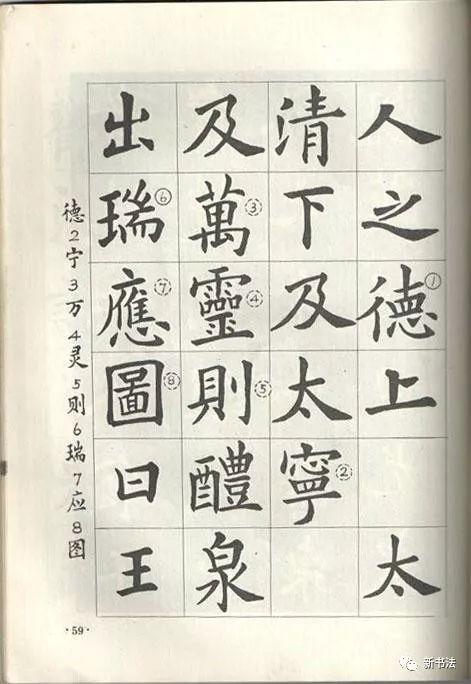 人之德①上太
清下及太寧②
及萬③靈④則⑤醴泉
出瑞⑥應⑦圖⑧曰王
德2宁3万4灵5则6瑞7应8图
·59·
新书法